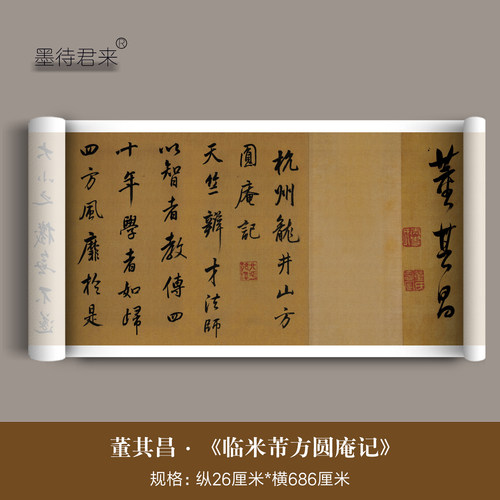 墨待君来®
董其昌
杭州龍井山方
圓庵記
天竺辨才法師
以智者教傳四
十年學者如歸
四方風靡於是
大小之機無不遂
董其昌·《临米芾方圆庵记》
规格：纵26厘米*横686厘米